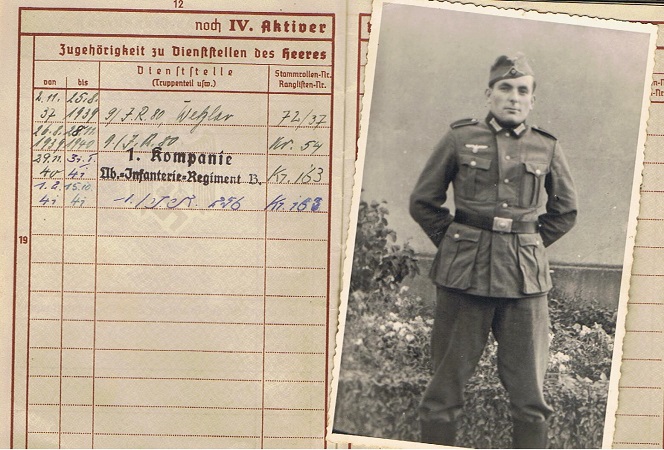 12
noch IV. Aktiver
Zugehörigkeit zu Dienststellen des Heeres
von bis Dienststelle (Truppenteil usw.) Stammrollen-Nr. Ranglisten-Nr.
2.11. 37 25.8. 1939 9/J.R 80, Wetzlar 72/37
26.8. 1939 28.11. 1940 9/J.R. 80 Nr. 54
29.11. 40 31.1. 41 1. Kompanie
Nb.-Infanterie-Regiment B. Nr. 163
1.2. 41 15.10. 41 1./J.R. Nr. 163
19